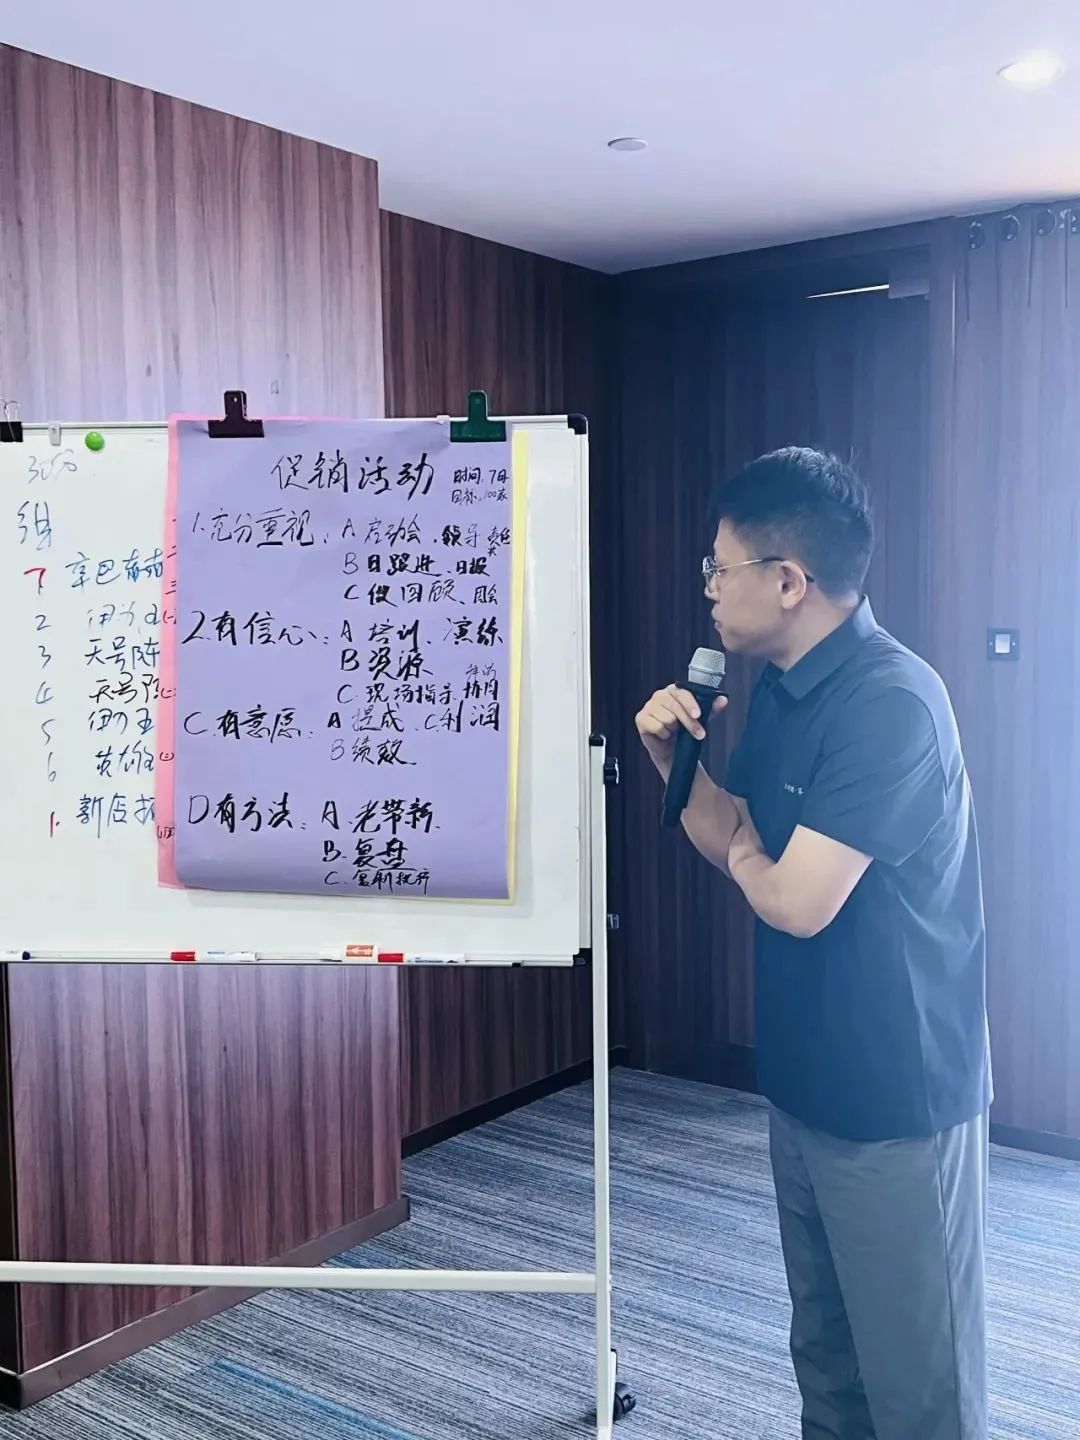 组
7 辛巴赫
2 伊力
3 天号陈
4 天号
5 伊力王
6 英雄
1. 新店
促销活动 时间:7日
目标:100家
1.充分重视: A 启动会、领导责任
B 日跟进、日报
C 做回顾、周会
2.有信心: A 培训、演练
B 资源
C.现场指导 协同
C.有意愿: A 提成. C.利润
B 绩效
D有方法: A.老带新.
B.复盘
C.复制执行